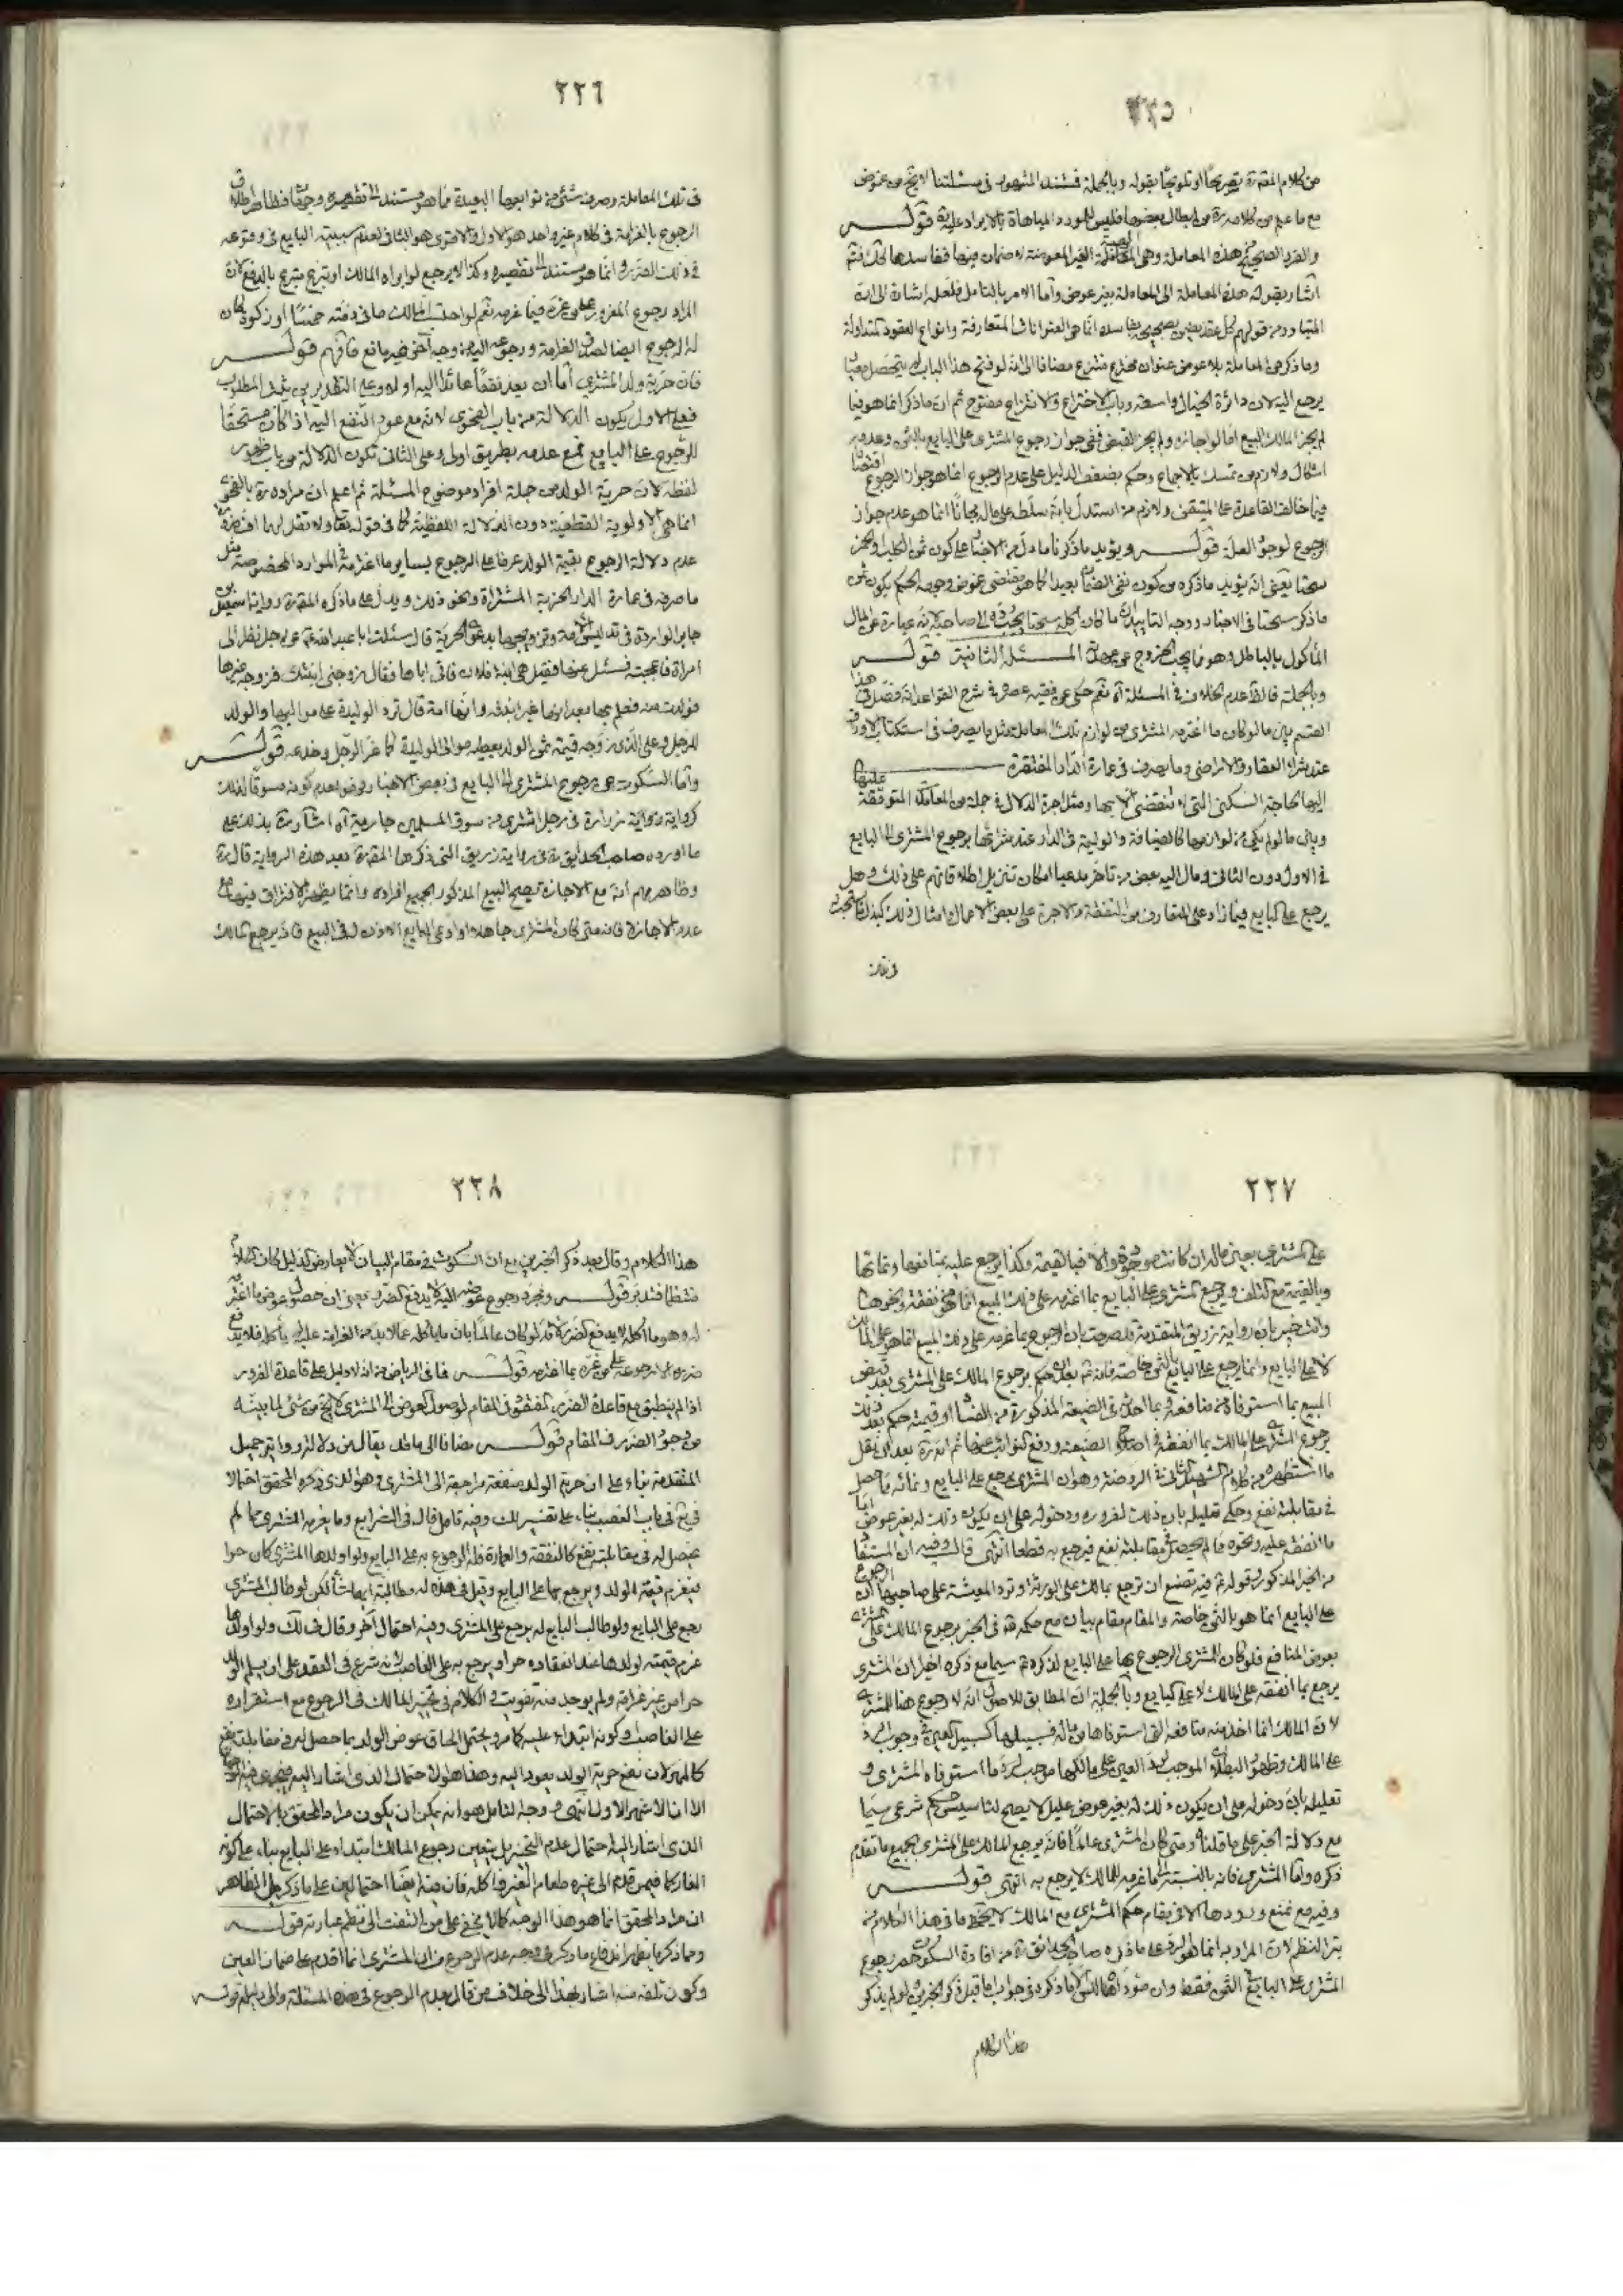 ٢٢٥
من كلام المقدس تصريحا او تلويحا بقوله وبالجملة فمستند المشهور في مسئلتنا لا يخ من غموض
مع ما علم من كلامه من ابطال بعضها فليس المورد المباهاة بالايراد عليه قوله
والفرد الصحيح من هذه المعاملة وهي الهبة الغير المعوضة لا ضمان فيها ففاسدها كك فتم
اشار بقوله هذه المعاملة الى المعاملة بغير عوض واما الامر بالتامل فلعله اشارة الى ان
المتبادر من قولهم كل عقد يضمن بصحيحه بفاسده انما هي العنوانات المتعارفة وانواع العقود المتداولة
وما ذكر من المعاملة بلا عوض عنوان مخترع منتزع مضافا الى انه لو فتح هذا الباب لم يتحصل
يرجع اليه لان دائرة الخيال واسعة وباب الاختراع والانتزاع مفتوح ثم ان ما ذكر انما هو فيما
لم يجز المالك البيع اما لو اجازه ولم يجز القبض ففي جواز رجوع المشتري على البايع بالثمن وعدمه
اشكال ولازم من تمسك بالاجماع وحكم بضعف الدليل على عدم الرجوع انما هو جواز الرجوع اقتصارا
فيما خالف القاعدة على المتيقن ولازم من استدل بانه سلطه على ماله مجانا انما هو عدم جواز
الرجوع لوجود العلة قوله ويؤيد ما ذكرنا ما دل من الاخبار على كون ثمن الكلب والخمر
سحتا يعني انه يؤيد ما ذكره من كون نفي الضمان بعيدا
ماذكر سحتا في الاخبار ووجه التاييد
المأكول بالباطل وهو مما يجب الخروج عن عهدته المسئلة الثانية قوله
وبالجملة فالظ عدم الخلاف في المسئلة اه نعم حكى عن فقيه عصره في شرح القواعد انه فصل في هذا
القسم بين ما لو كان ما اغترمه المشتري من لوازم تلك المعاملة مثل ما يصرف في استكتاب الاوراق
عند شراء العقار والاراضي وما يصرف في عمارة الدار المفتقرة
اليها لحاجة السكنى التي لا تنقضي الا بها ومثل اجرة الدلال في جملة من المعاملة المتوقفة عليها
وبين ما لو لم يكن من لوازمها كالضيافة والوليمة في الدار عند شرائها برجوع المشتري الى البايع
في الاول دون الثاني ومال اليه بعض من تاخر مدعيا امكان تنزيل اطلاقاتهم على ذلك وهل
يرجع على البايع فيما زاد على المتعارف من النفقة والاجرة على بعض الاعمال امثال ذلك
في تلك
٢٢٦
في تلك المعاملة وصرفه شئ من توابعها البعيدة مما هو مستند الى تقصيره وجهان فظاهر اطلاق
الرجوع بالغرامة في كلام غير واحد هو الاول والاقوى هو الثاني لعدم سببية البايع في وقوعه
في ذلك الضرر وانما هو مستند الى تقصيره وكذا لا يرجع لو ابراه المالك او تبرع متبرع بالدفع لان
المراد رجوع المغرور على من غره فيما غرمه نعم لو احتسب المالك ما في ذمته خمسا او زكوة كان
له الرجوع ايضا لصدق الغرامة ورجوعه اليه من وجه اخر غير مانع فافهم قوله
فان حرية ولد المشتري اما ان يعد نفعا عائدا اليه اولا وعلى التقديرين يثبت المطلوب
فعلى الاول يكون الدلالة من باب الفحوى لانه مع عود النفع اليه اذا كان مستحقا
للرجوع على البايع فمع عدمه بطريق اولى وعلى الثاني تكون الدلالة من باب ظهور
لفظه لان حرية الولد من جملة افراد موضوع المسئلة ثم اعلم ان مراده ره بالفحوى
انما هي الاولوية القطعية دون الدلالة اللفظية كما في قوله تعالى ولا تقل لهما اف ضرورة
عدم دلالة الرجوع بقيمة الولد عرفا على الرجوع بساير ما اغترمه في الموارد المخصوصة مثل
ما صرفه في عمارة الدار الخربة المشتراة ونحو ذلك ويدل على ما ذكره المقدس رواية اسمعيل بن
جابر الواردة في تدليس الامة وتزويجها بدعوى الحرية قال سئلت ابا عبد الله ع عن رجل نظر الى
امراة فاعجبته فسئل عنها فقيل هي ابنة فلان فاتى اباها فقال زوجني ابنتك فزوجه غيرها
فولدت منه فعلم بها بعد انها غير ابنته وانها امة قال ترد الوليدة على مواليها والولد
للرجل وعلى الذي زوجه قيمة ثمن الولد يعطيه موالى الوليدة كما غر الرجل وخدعه قوله
واما السكوت عن رجوع المشتري الى البايع في بعض الاخبار فهو لعدم كونه مسوقا لذلك
كرواية زرارة في رجل اشترى من سوق المسلمين جارية اه اشار ره بذلك على
ما اورده صاحب الحدائق ره في رواية زريق التي ذكرها المقدس بعد هذه الرواية قال ره
وظاهرهم انه مع الاجازة تصح البيع المذكور بجميع افراده وانما يظهر الافتراق فيها مع
عدم الاجازة فانه متى كان المشتري جاهلا او ادعى البايع الاذن له في البيع فانه يرجع المالك
٢٢٧
على المشتري بعين ماله ان كانت موجودة والا فبالقيمة وكذا يرجع عليه بمنافعها ونمائها
وبالقيمة مع التلف ويرجع المشتري على البايع بما اغترمه على ذلك المبيع انما هو نفقة ونحوها
وانت خبير بان رواية زريق المتقدمة قد صرحت بان الرجوع بما غرمه على ذلك المبيع انما هو على المالك
لا على البايع وانما يرجع على البايع بالثمن خاصة فانه ع بعد ان حكم برجوع المالك على المشتري بعد قبض
المبيع بما استوفاه من منافعه وبما احدث في الضيعة المذكورة من الفساد او قيمته حكم بعد ذلك
برجوع المشتري على المالك بما انفقه في اصلاح الضيعة ودفع النوائب عنها ثم انه ره بعد ان نقل
ما استظهره من كلام الشهيد الثاني في الروضة وهو ان المشتري يرجع على البايع
في مقابلته نفع وحكى تعليله بان ذلك لغروره ودخوله على ان يكون ذلك له بغير عوض اما
ما انفقه عليه ونحوه مما لم يحصل في مقابلته نفع فيرجع به قطعا انتهى قال وفيه ان المستفاد
من الخبر المذكور وقوله ع فيه تصنع ان ترجع بمالك على الورثة وترد المعيشة على صاحبها ان الرجوع
على البايع انما هو بالثمن خاصة والمقام مقام بيان مع حكمه ع في الخبر برجوع المالك على المشتري
بعوض المنافع فلو كان للمشتري الرجوع بها على البايع لذكره ع سيما مع ذكره اخيرا ان المشتري
يرجع بما انفقه على المالك لا على البايع وبالجملة ان المطابق للاصول انه لا رجوع هنا للمشتري
لان المالك انما اخذ منه منافعه التي استوفاها من ماله فسبيلها كسبيل العين في وجوب الرد
على المالك وظهور البطلان الموجب لرد العين على مالكها موجب لرد ما استوفاه المشتري و
تعليله بان دخوله على ان يكون ذلك له بغير عوض عليل لا يصلح لتاسيس حكم شرعي سيما
مع دلالة الخبر على ما قلناه ومتى كان المشتري عالما فانه يرجع المالك على المشتري بجميع ما تقدم
ذكره واما المشتري فانه بالنسبة الى ما غرمه للمالك لا يرجع به انتهى قوله
وفيه مع منع ورودها الا في مقام حكم المشتري مع المالك لا يخفى ما في هذا الكلام من
بتر النظم لان المراد به انما هو الرد على ما ذكره صاحب الحدائق ره من افادة السكوت
المشتري على البايع الثمن فقط
هذا الكلام
٢٢٨
هذا الكلام وقال بعد ذكر الخبرين مع ان السكوت في مقام البيان لا يعارض الدليل كان كلاما
منتظما فتدبر قوله ومجرد رجوع عوضه اليه لا يدفع الضرر يعني ان حصول عوض ما اغترم
له وهو ما اكله لا يدفع الضرر لانه لو كان عالما بان ما ياكله مما لا بد من الغرامة عليه لم ياكله فلا يندفع
ضرره الا برجوعه على من غره بما اغترمه قوله فما في الرياض من انه لا دليل على قاعدة الغرور
اذا لم ينطبق مع قاعدة الضرر المفقود في المقام لوصول العوض الى المشتري لا يخ من شئ لما بينه
من وجود الضرر في المقام قوله مضافا الى ما قد يقال من دلالة رواية جميل
المتقدمة بناء على ان حرية الولد منفعة راجعة الى المشتري وهو الذي ذكره المحقق احتمالا
في يع في باب الغصب بناء على تفسير لك وفيه تامل قال في الشرايع وما يغرمه المشتري مما لم
يحصل له في مقابلته نفع كالنفقة والعمارة فله الرجوع به على البايع ولو اولدها المشتري كان حرا
يغرم قيمة الولد ويرجع بها على البايع وقيل في هذه له مطالبة ايهما شاء لكن لو طالب المشتري
رجع على البايع ولو طالب البايع لم يرجع على المشتري وفيه احتمال اخر وقال في لك ولو اولدها
غرم قيمته لولدها عند انعقاده حرا ويرجع به على الغاصب لانه شرع في العقد على ان يسلم الولد
حرا من غير غرامة ولم يوجد منه تفويت والكلام في تخيير المالك في الرجوع مع استقراره
على الغاصب وكونه ابتداء عليه كما مر ويحتمل الحاق عوض الولد بما حصل له في مقابلته نفع
كالمهر لان نفع حرية الولد يعود اليه وهذا هو الاحتمال الذي اشار اليه
الا ان الاشهر الاول انتهى ووجه التامل هو انه يمكن ان يكون مراد المحقق بالاحتمال
الذي اشار اليه احتمال عدم التخيير بل يتعين رجوع المالك ابتداء على البايع بناء على كونه
الغار كما فيمن قدم الى غيره طعام الغير فاكله فان فيه ايضا احتمالين على ما ذكر بل الظاهر
ان مراد المحقق انما هو هذا الوجه كما لا يخفى على من التفت الى نظم عبارته قوله
ومما ذكرنا يظهر اندفاع ما ذكر في وجه عدم الرجوع من ان المشتري انما اقدم على ضمان العين
وكون تلفه منه اشار بهذا الى خلاف من قال بعدم الرجوع في هذه المسئلة والى دليله قوله